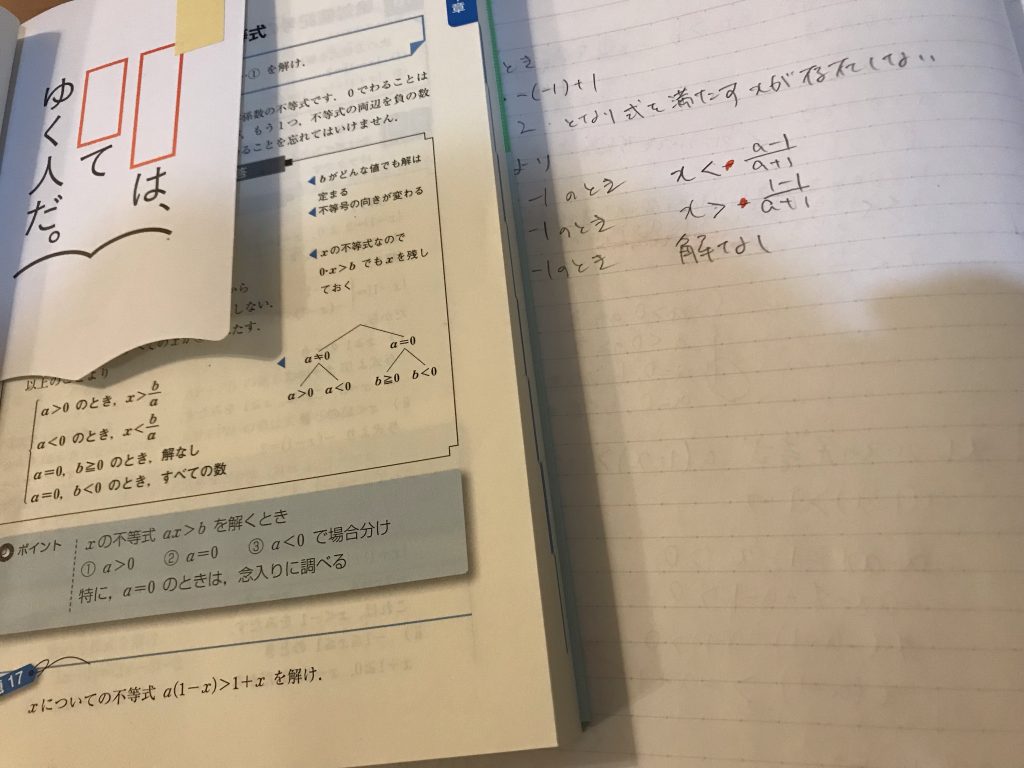 は、
て
ゆく人だ。
章
式
① を解け.
係数の不等式です. 0でわることは
もう1つ, 不等式の両辺を負の数
ることを忘れてはいけません.
bがどんな値でも解は
定まる
不等号の向きが変わる
xの不等式なので
0·x>b でもxを残し
ておく
から
しない.
たす.
以上のことより
a>0 のとき, x>b/a
a<0 のとき, x<b/a
a=0, b≧0 のとき, 解なし
a=0, b<0 のとき, すべての数
a≠0 a=0
a>0 a<0 b≧0 b<0
ポイント
xの不等式 ax>b を解くとき
① a>0 ② a=0 ③ a<0 で場合分け
特に, a=0 のときは, 念入りに調べる
17
xについての不等式 a(1−x)>1+x を解け.
とき
-(-1)+1
2 となり式を満たすxが存在しない
より
-1 のとき x< a-1/a+1
-1 のとき x> 1-1/a+1
-1のとき 解なし